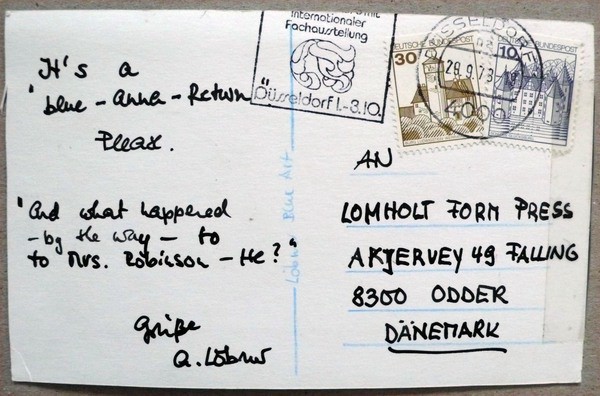 Internationaler
Fachausstellung
Düsseldorf 1.-3.10.
DEUTSCHE BUNDESPOST
30
10
BUNDESPOST
DÜSSELDORF
4000
It's a
"blue-Anna-Return"
Please.
"And what happened
-by the way- to
to Mrs. Robinson - He?"
Grüße
A. Löbner
Blue Art
AN
LOMHOLT FORM PRESS
AKJERVEY 49 FALLING
8300 ODDER
DÄNEMARK